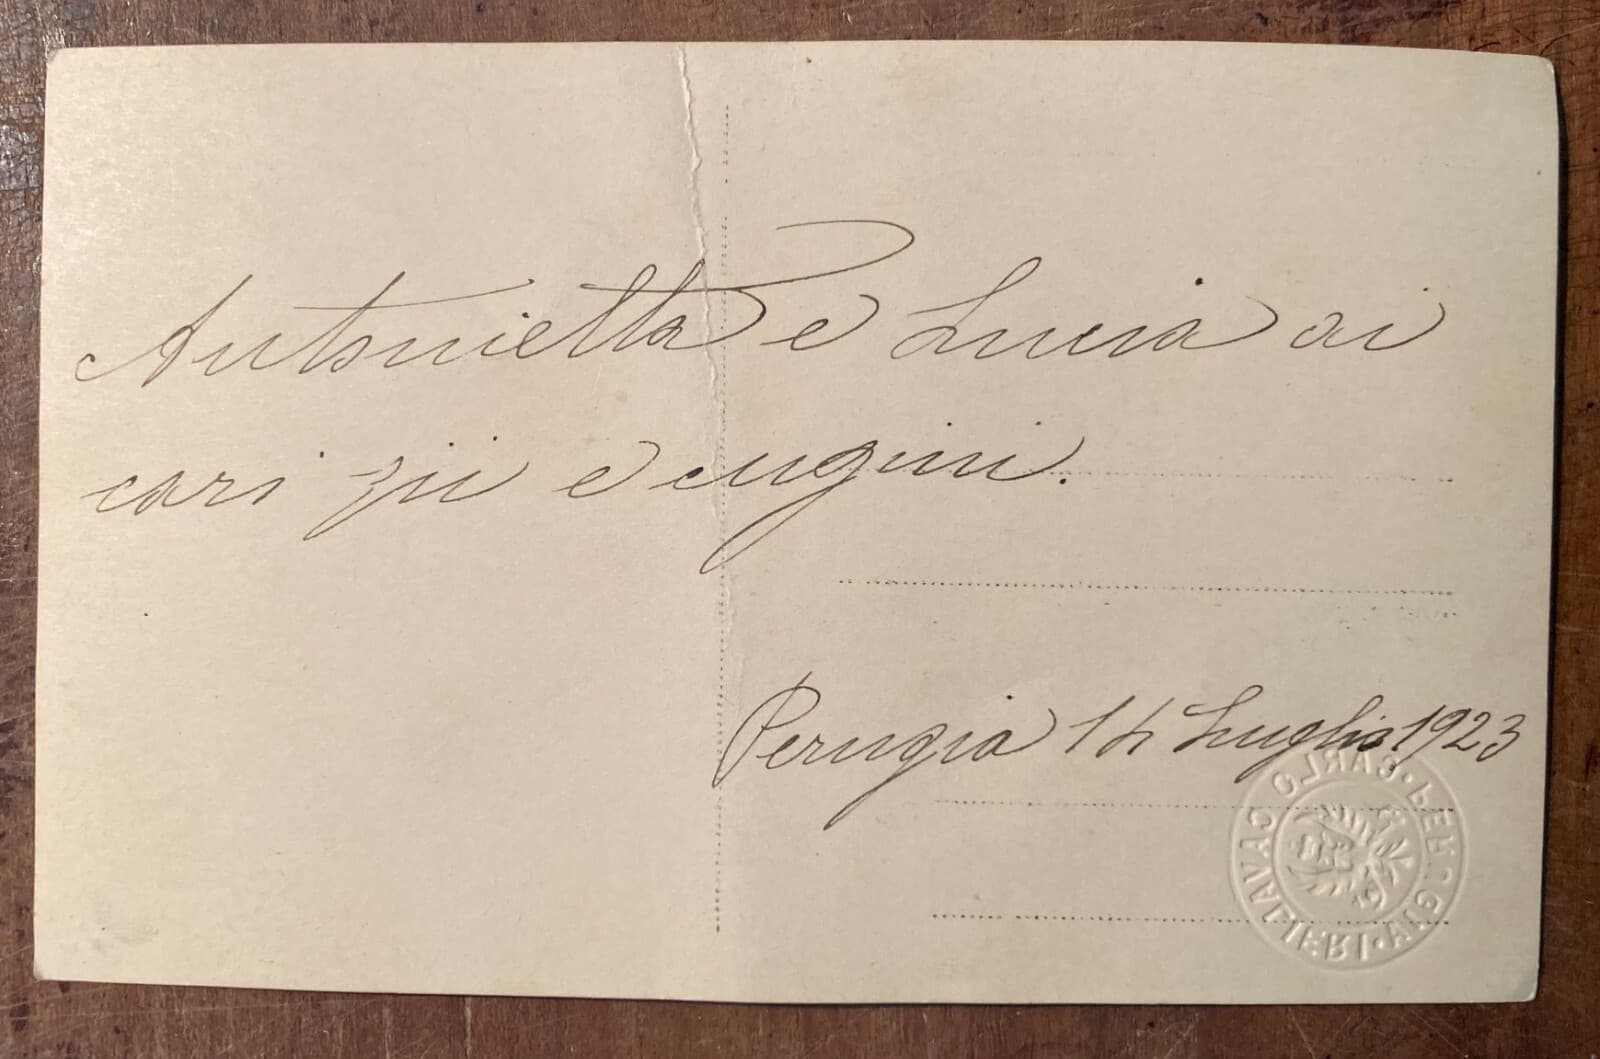 Antonietta e Lucia ai
cari zii e cugini.
Perugia 14 Luglio 1923
CARLO CAVALIERI • PERUGIA •